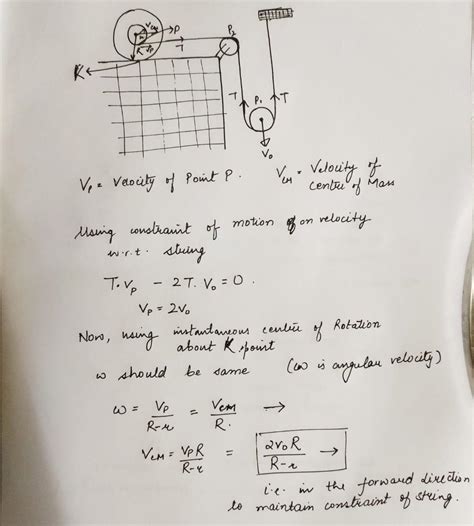 V_CM P
P₂
R V_P T
K
T P₁ T
V₀
V_P = Velocity of Point P. V_CM = Velocity of centre of Mass
Using constraint of motion on velocity
w.r.t. string
T·V_P − 2T·V₀ = 0.
V_P = 2V₀
Now, using instantaneous centre of Rotation
about K point
ω should be same (ω is angular velocity)
ω = V_P/(R−r) = V_CM/R. →
V_CM = V_P R/(R−r) = 2V₀R/(R−r) →
i.e. in the forward direction
to maintain constraint of string.